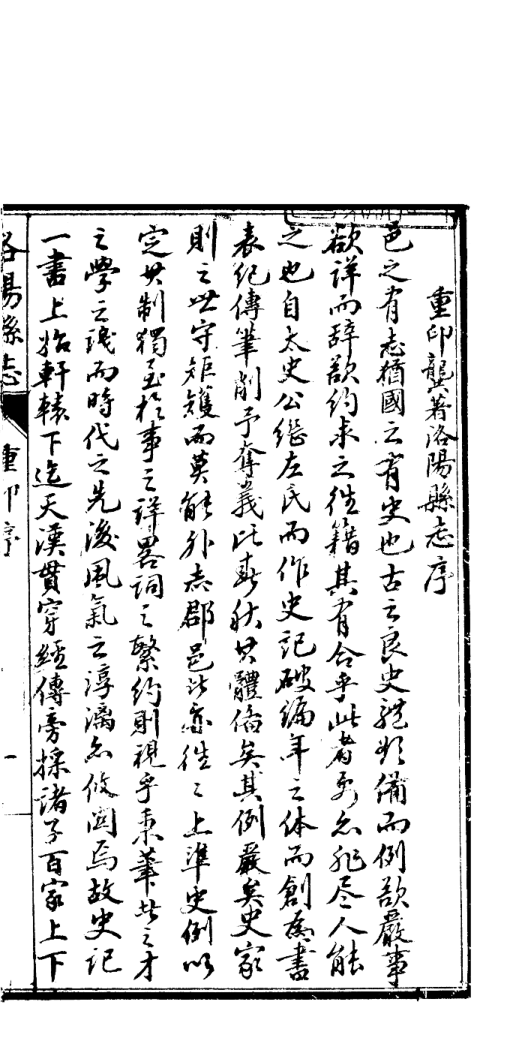 重印龔著洛陽縣志序
邑之有志猶國之有史也古之良史體欲備而例欲嚴事
欲詳而辞欲約求之往籍其有合乎此者要亦非尽人能
之也自太史公繼左氏而作史記破編年之体而創為書
表紀傳筆削予奪義比春秋其體備矣其例嚴矣史家
則之世守矩矱而莫能外志郡邑者亦往〻上準史例以
定其制獨至於事之詳畧詞之繁約則視乎秉筆者之才
之學之識而時代之先後風氣之淳漓亦攸関焉故史記
一書上始軒轅下迄天漢貫穿經傳旁採諸子百家上下
洛陽縣志
重印序
一